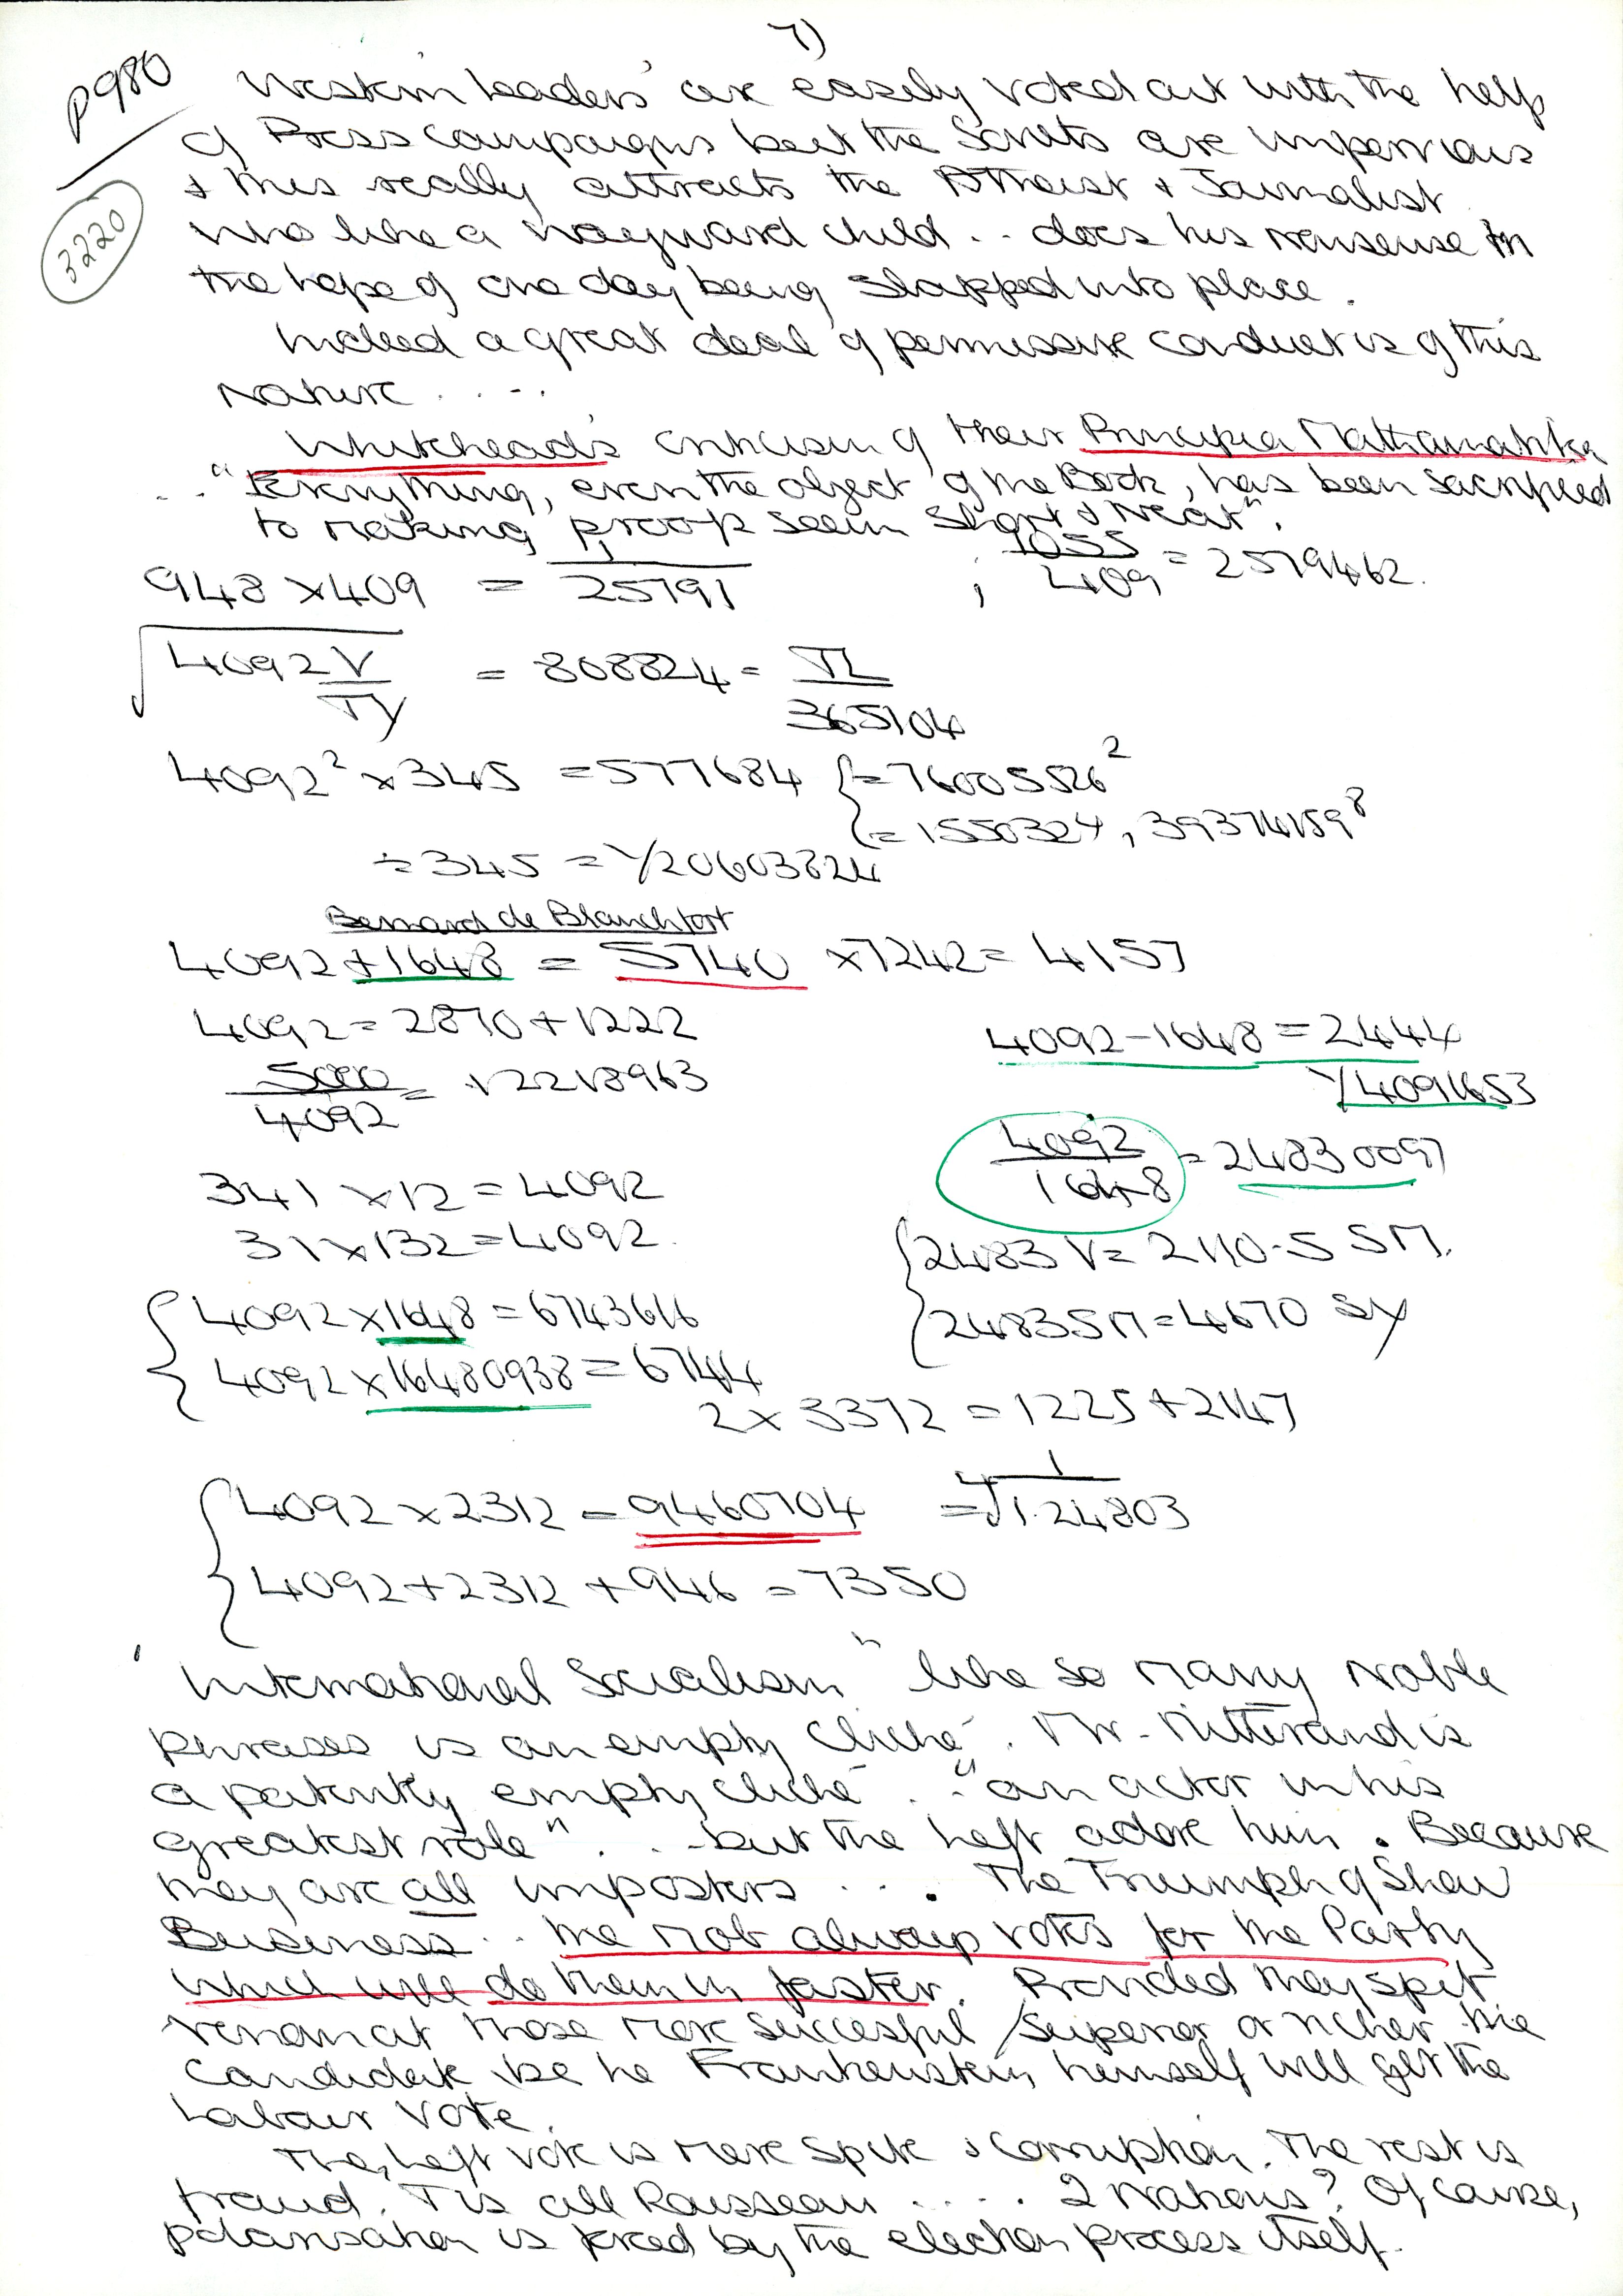 7)
P980
3220
Western Leaders' are easely voted out with the help
of Press campaigns but the Soviets are impervious
& this really attracts the Atheist & Journalist
who like a wayward child .. does his nonsense in
the hope of one day being slapped into place.
Indeed a great deal of permissive conduct is of this
nature ....
Whitehead's criticism of their Principia Mathamatika
.. "Everything, even the object of the Book, has been sacrificed
to making proofs seem short & neat".
948 x 409 = 1/25791 ; 1055/409 = 2579462.
√4092V/TY = 808824 = TL/365104
4092² x 345 = 577684 { = 76005526²
{ = 1550324, 39374159⁸
÷ 345 = Y20603824
Bernard de Blanchfort
4092 + 1648 = 5740 x 7242 = 4157
4092 = 2870 + 1222
4092 - 1648 = 2444
5000/4092 = 12218963
Y4091653
4092/1648 = 24830097
341 x 12 = 4092
31 x 132 = 4092.
{ 2483 V = 2110.5 SM.
{ 2483 SM = 4670 SY
{ 4092 x 1648 = 6743616
{ 4092 x 16480938 = 6744
2 x 3372 = 1225 + 2147
{ 4092 x 2312 = 9460704 = ⁴√1/1.24803
{ 4092 + 2312 + 946 = 7350
'International Socialism" like so many noble
phrases is an empty cliché. Mr. Mitterand is
a patently empty cliché .. "an actor in his
greatest role" ... but the Left adore him. Because
they are all imposters .... The Triumph of Show
Business .. the mob always votes for the Party
which will do them in faster. Provided they spit
venom at those more succesful/superior or richer the
candidate be he Frankenstein himself will get the
Labour Vote.
The Left vote is mere spite & corruption. The rest is
fraud. Tis all Rousseau ..... 2 Nations? Of course,
polarisation is forced by the election process itself.